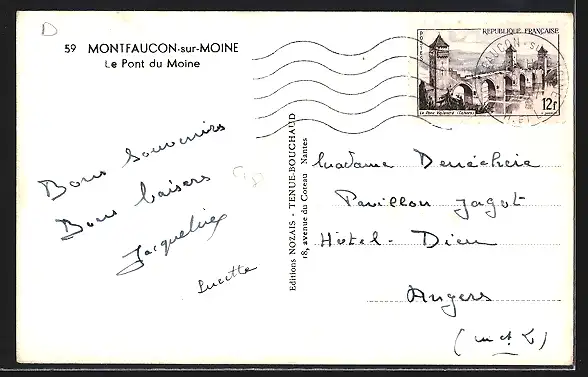 D
59 MONTFAUCON-sur-MOINE
Le Pont du Moine
POSTES
REPUBLIQUE FRANÇAISE
Le Pont Valentré (Cahors)
12f
Bons Souvenirs
Bons baisers
Jacqueline
Lucette
Editions NOZAIS - TENUE-BOUCHAUD
18, avenue du Coteau Nantes
Madame Denécheie
Pavillon Jagot
Hôtel-Dieu
Angers
(M et L)